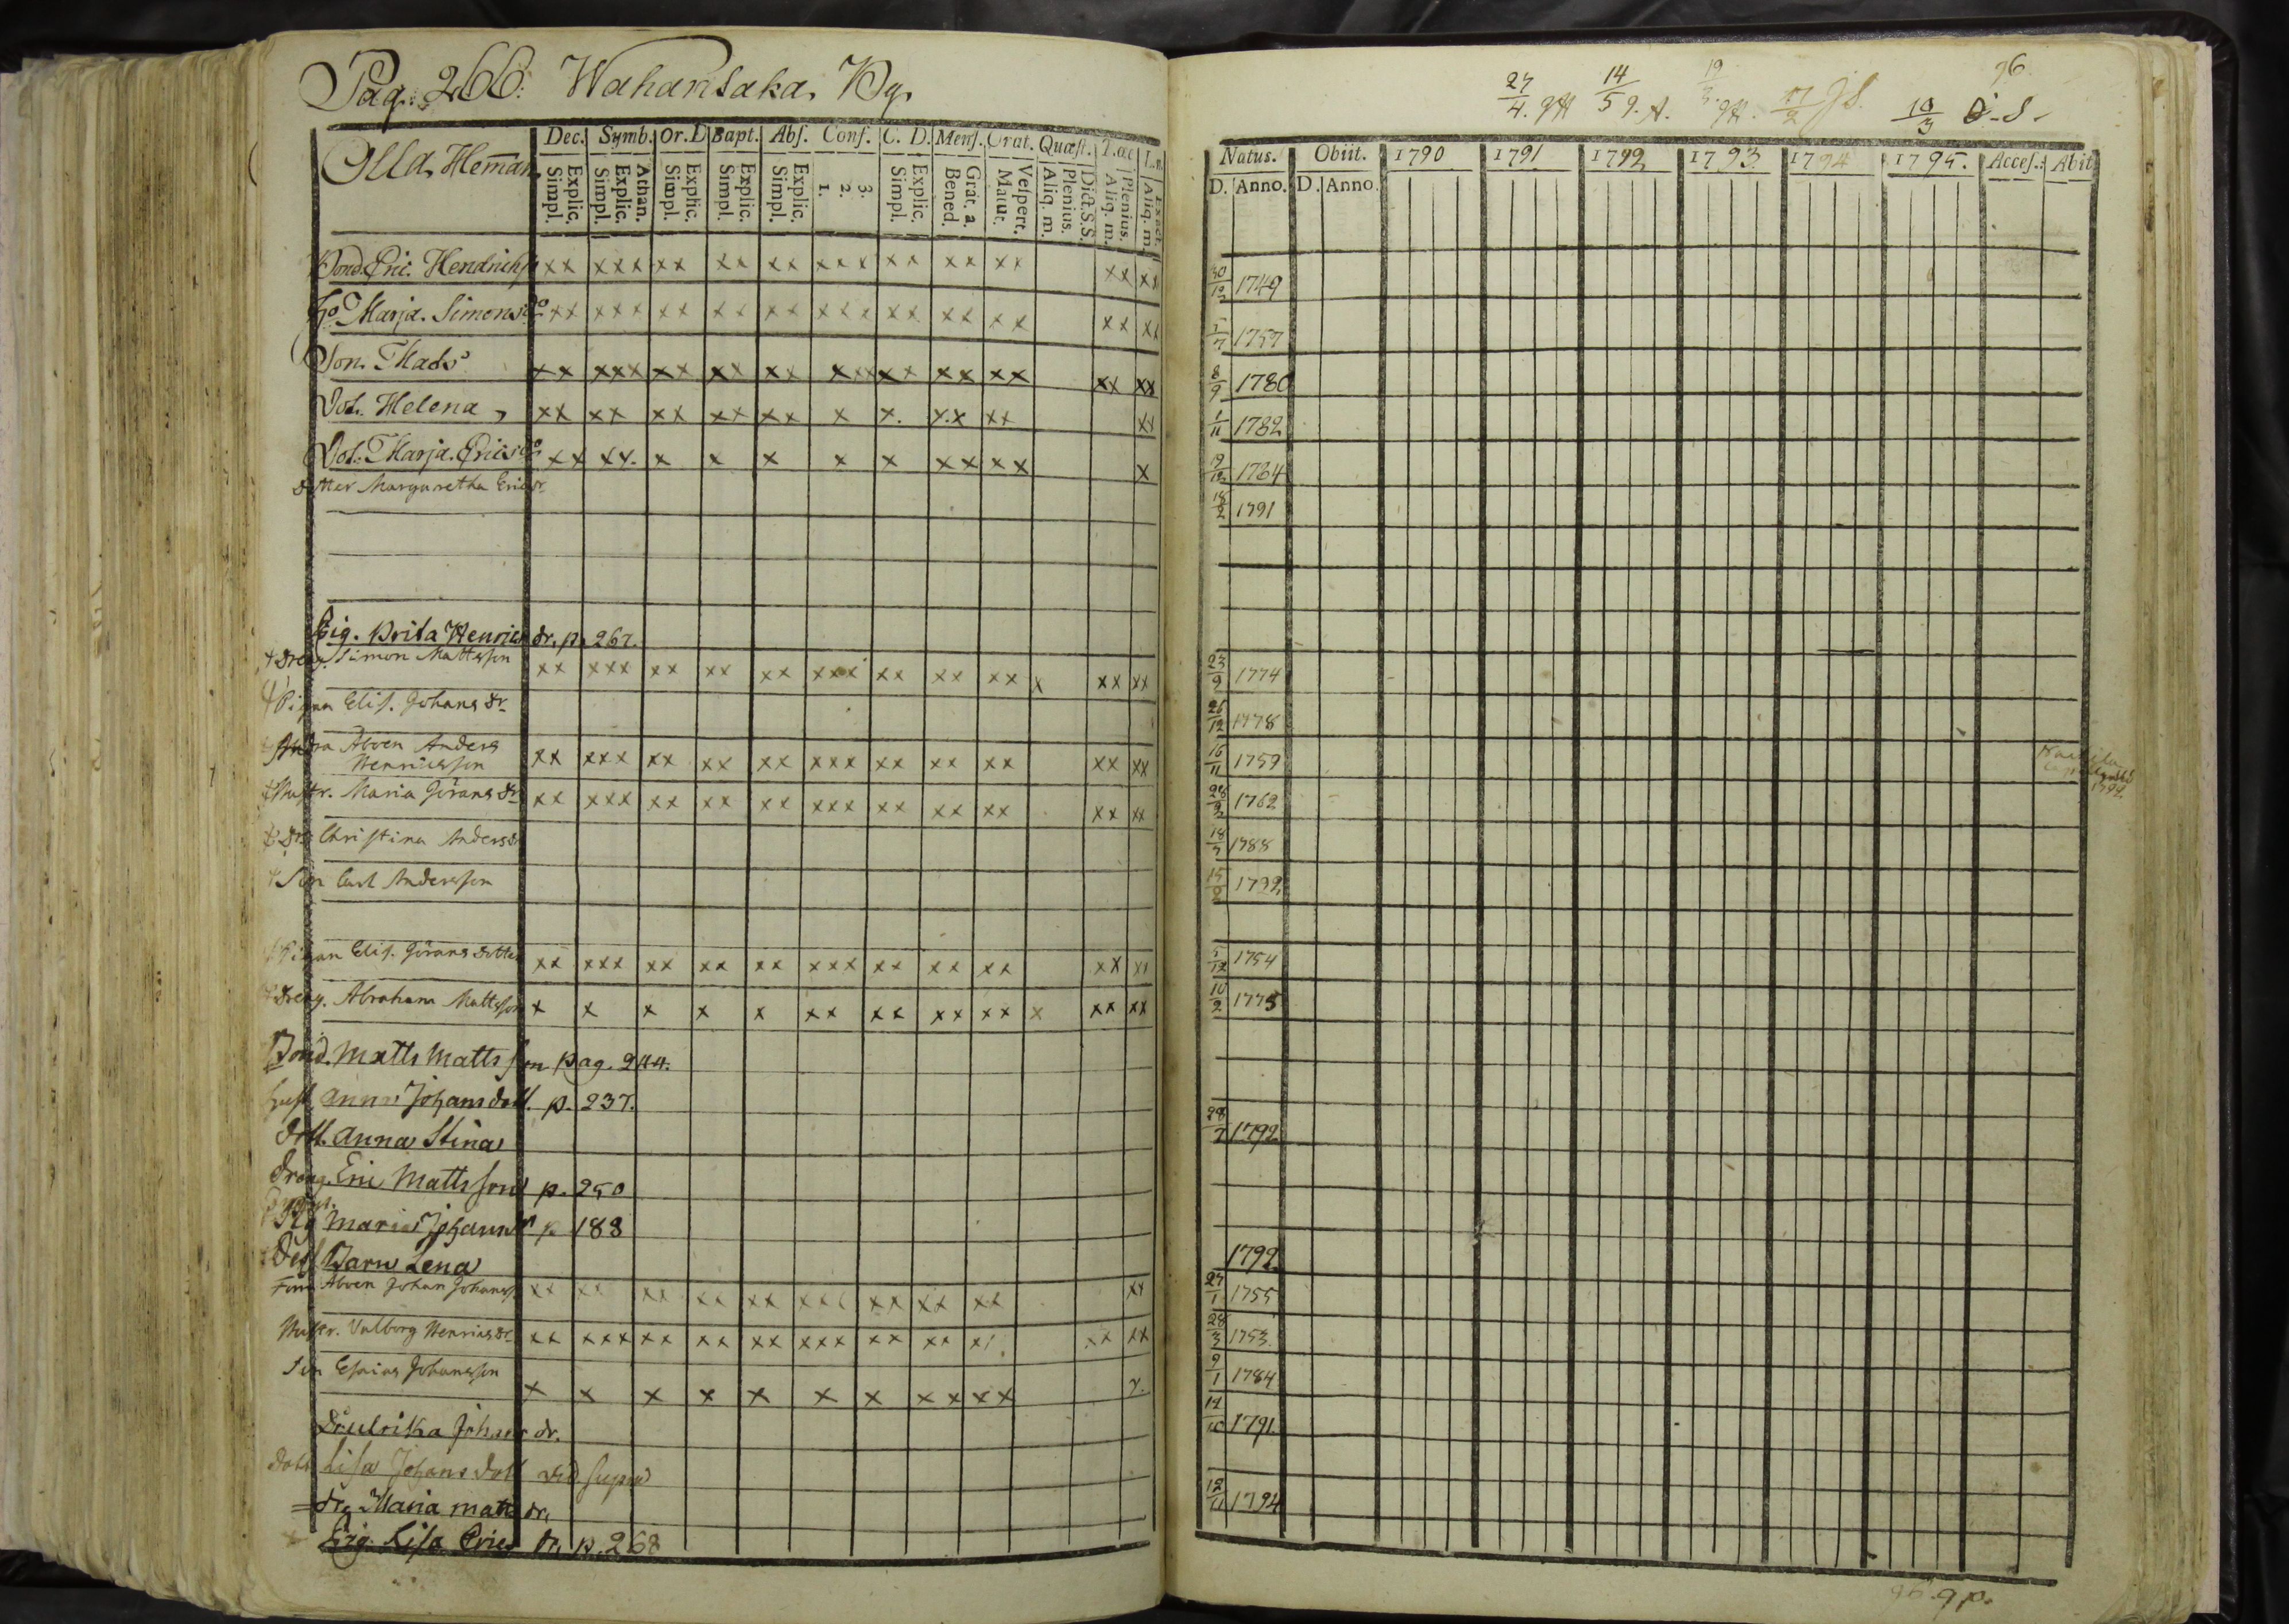 Pag. 266. Wahansaka By.
Olla Hemān
Dec. Symb. Or. D Bapt. Abs. Conf. C. D. Mens. Orat. Quæst. T. æc
Explic. Simpl.
Athan. Explic. Simpl.
Explic. Simpl.
Explic. Simpl.
Explic. Simpl.
3. 2. 1.
Explic. Simpl.
Grat. a. Bened.
Vespert. Matut.
Dict. S. S. Plenius. Aliq. m.
Plenius. Aliq. m.
Exact. Aliq. m.
Bond. Eric. Hendrichs xx xxx xx xx xx xxx xx xx xx xx xx
Ho Marja. Simonsdo xx xxx xx xx xx xxx xx xx xx xx xx
Son. Mads xx xxx xx xx xx xxx xx xx xx xx xx
Dot. Helena xx xx xx xx xx x x. x.x xx xx
Dot. Marja. Ericsdo xx xx. x x x x x xx xx x
dotter Margaretha Ericsdr
Pig. Brita Henrics dr, p. 267.
+ Dreng. Simon Mattsson xx xxx xx xx xx xxx xx xx xx x xx xx
Pigan Elis. Johans dr
Åboen Anders Henricsson xx xxx xx xx xx xxx xx xx xx xx xx
Hustr. Maria Görans dr xx xxx xx xx xx xxx xx xx xx xx xx
Dr Christina Andersdr
+ Son Carl Andersson
Pigan Elis. Görans dotter xx xxx xx xx xx xxx xx xx xx xx xx
+ Dreng. Abraham Mattsson x x x x x xx xx xx xx x xx xx
Bond. Matts Mattsson pag. 244.
hust Anna Johansdott. p. 237.
dott. Anna Stina
Dreng. Eric Mattsson p. 250
Pig Maria Johansdr p. 188
Barn Lena
Åboen Johan Johanss xx xx xx xx xx xxx xx xx xx xx
Hustr. Valborg Henricsdr xx xxx xx xx xx xxx xx xx xx xx xx
Son Esaias Johansson x x x x x x x xx xx x.
Dr Ulrika Johans dr.
Dott Lisa Johans dott vid supra
= dr, Maria Matts dr,
Pig. Lisa Erics dr, p. 268
96
27/4. 14/5 19/3. 17/2 J S. 10/3 S.
Natus. Obiit. 1790 1791 1792 1793 1794 1795. Acces. Abit
D. Anno. D. Anno.
30/12 1749
5/7 1757
8/9 1780
1/11 1782
19/12 1784
18/2 1791
23/9 1774
26/12 1778
16/11 1759
1792.
28/2 1762
18/7 1788
15/2 1792
5/12 1754
10/2 1775
28/7 1792
1792
27/1 1755
28/3 1753
9/1 1784
14/10 1791
12/11 1794
96. 9 p.